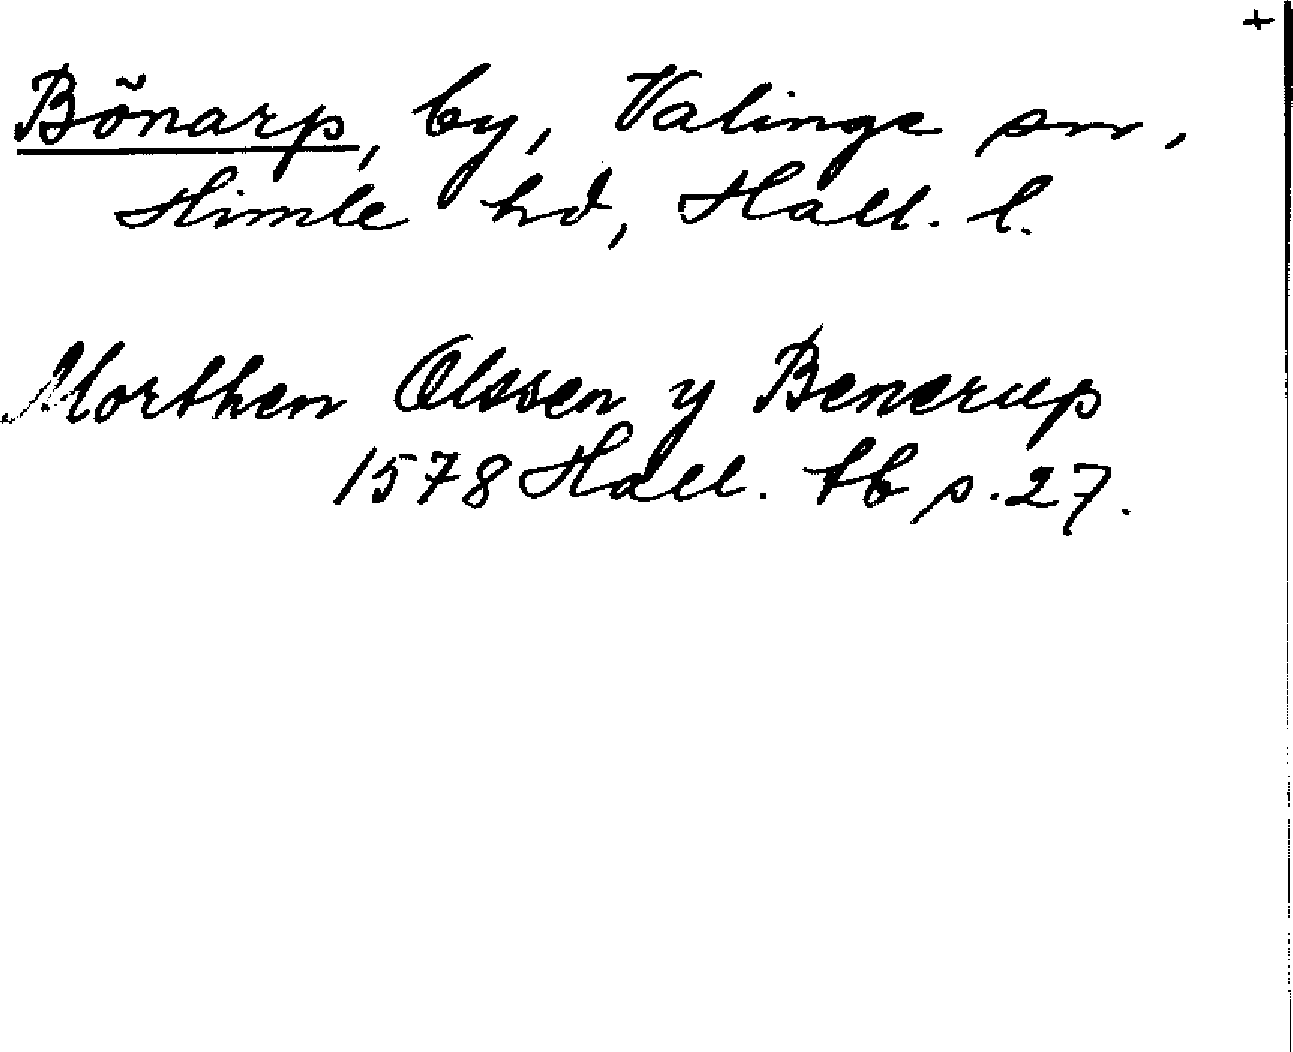 +
Bönarp, by, Valinge sn,
Himle hd, Hall. l.
Morthen Olssen y Benerup
1578 Hall. tb s. 27.